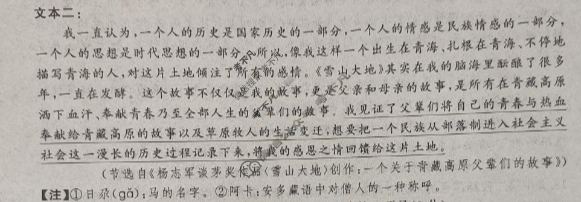 文本二：
我一直认为，一个人的历史是国家历史的一部分，一个人的情感是民族情感的一部分，
一个人的思想是时代思想的一部分。所以，像我这样一个出生在青海、扎根在青海、不停地
描写青海的人，对这片土地倾注了所有的感情。《雪山大地》其实在我的脑海里酝酿了很多
年，一直在发酵。这个故事不仅仅是我的故事，更是父亲和母亲的故事，是所有在青藏高原
洒下血汗、奉献青春乃至全部人生的父辈们的故事。我见证了父辈们将自己的青春与热血
奉献给青藏高原的故事以及草原牧人的生活变迁，想要把一个民族从部落制进入社会主义
社会这一漫长的历史过程记录下来，将我的感恩之情回馈给这片土地。
（节选自《杨志军谈茅奖作品〈雪山大地〉创作：一个关于青藏高原父辈们的故事》）
【注】①日尕(gǎ)：马的名字。②阿卡：安多藏语中对僧人的一种称呼。